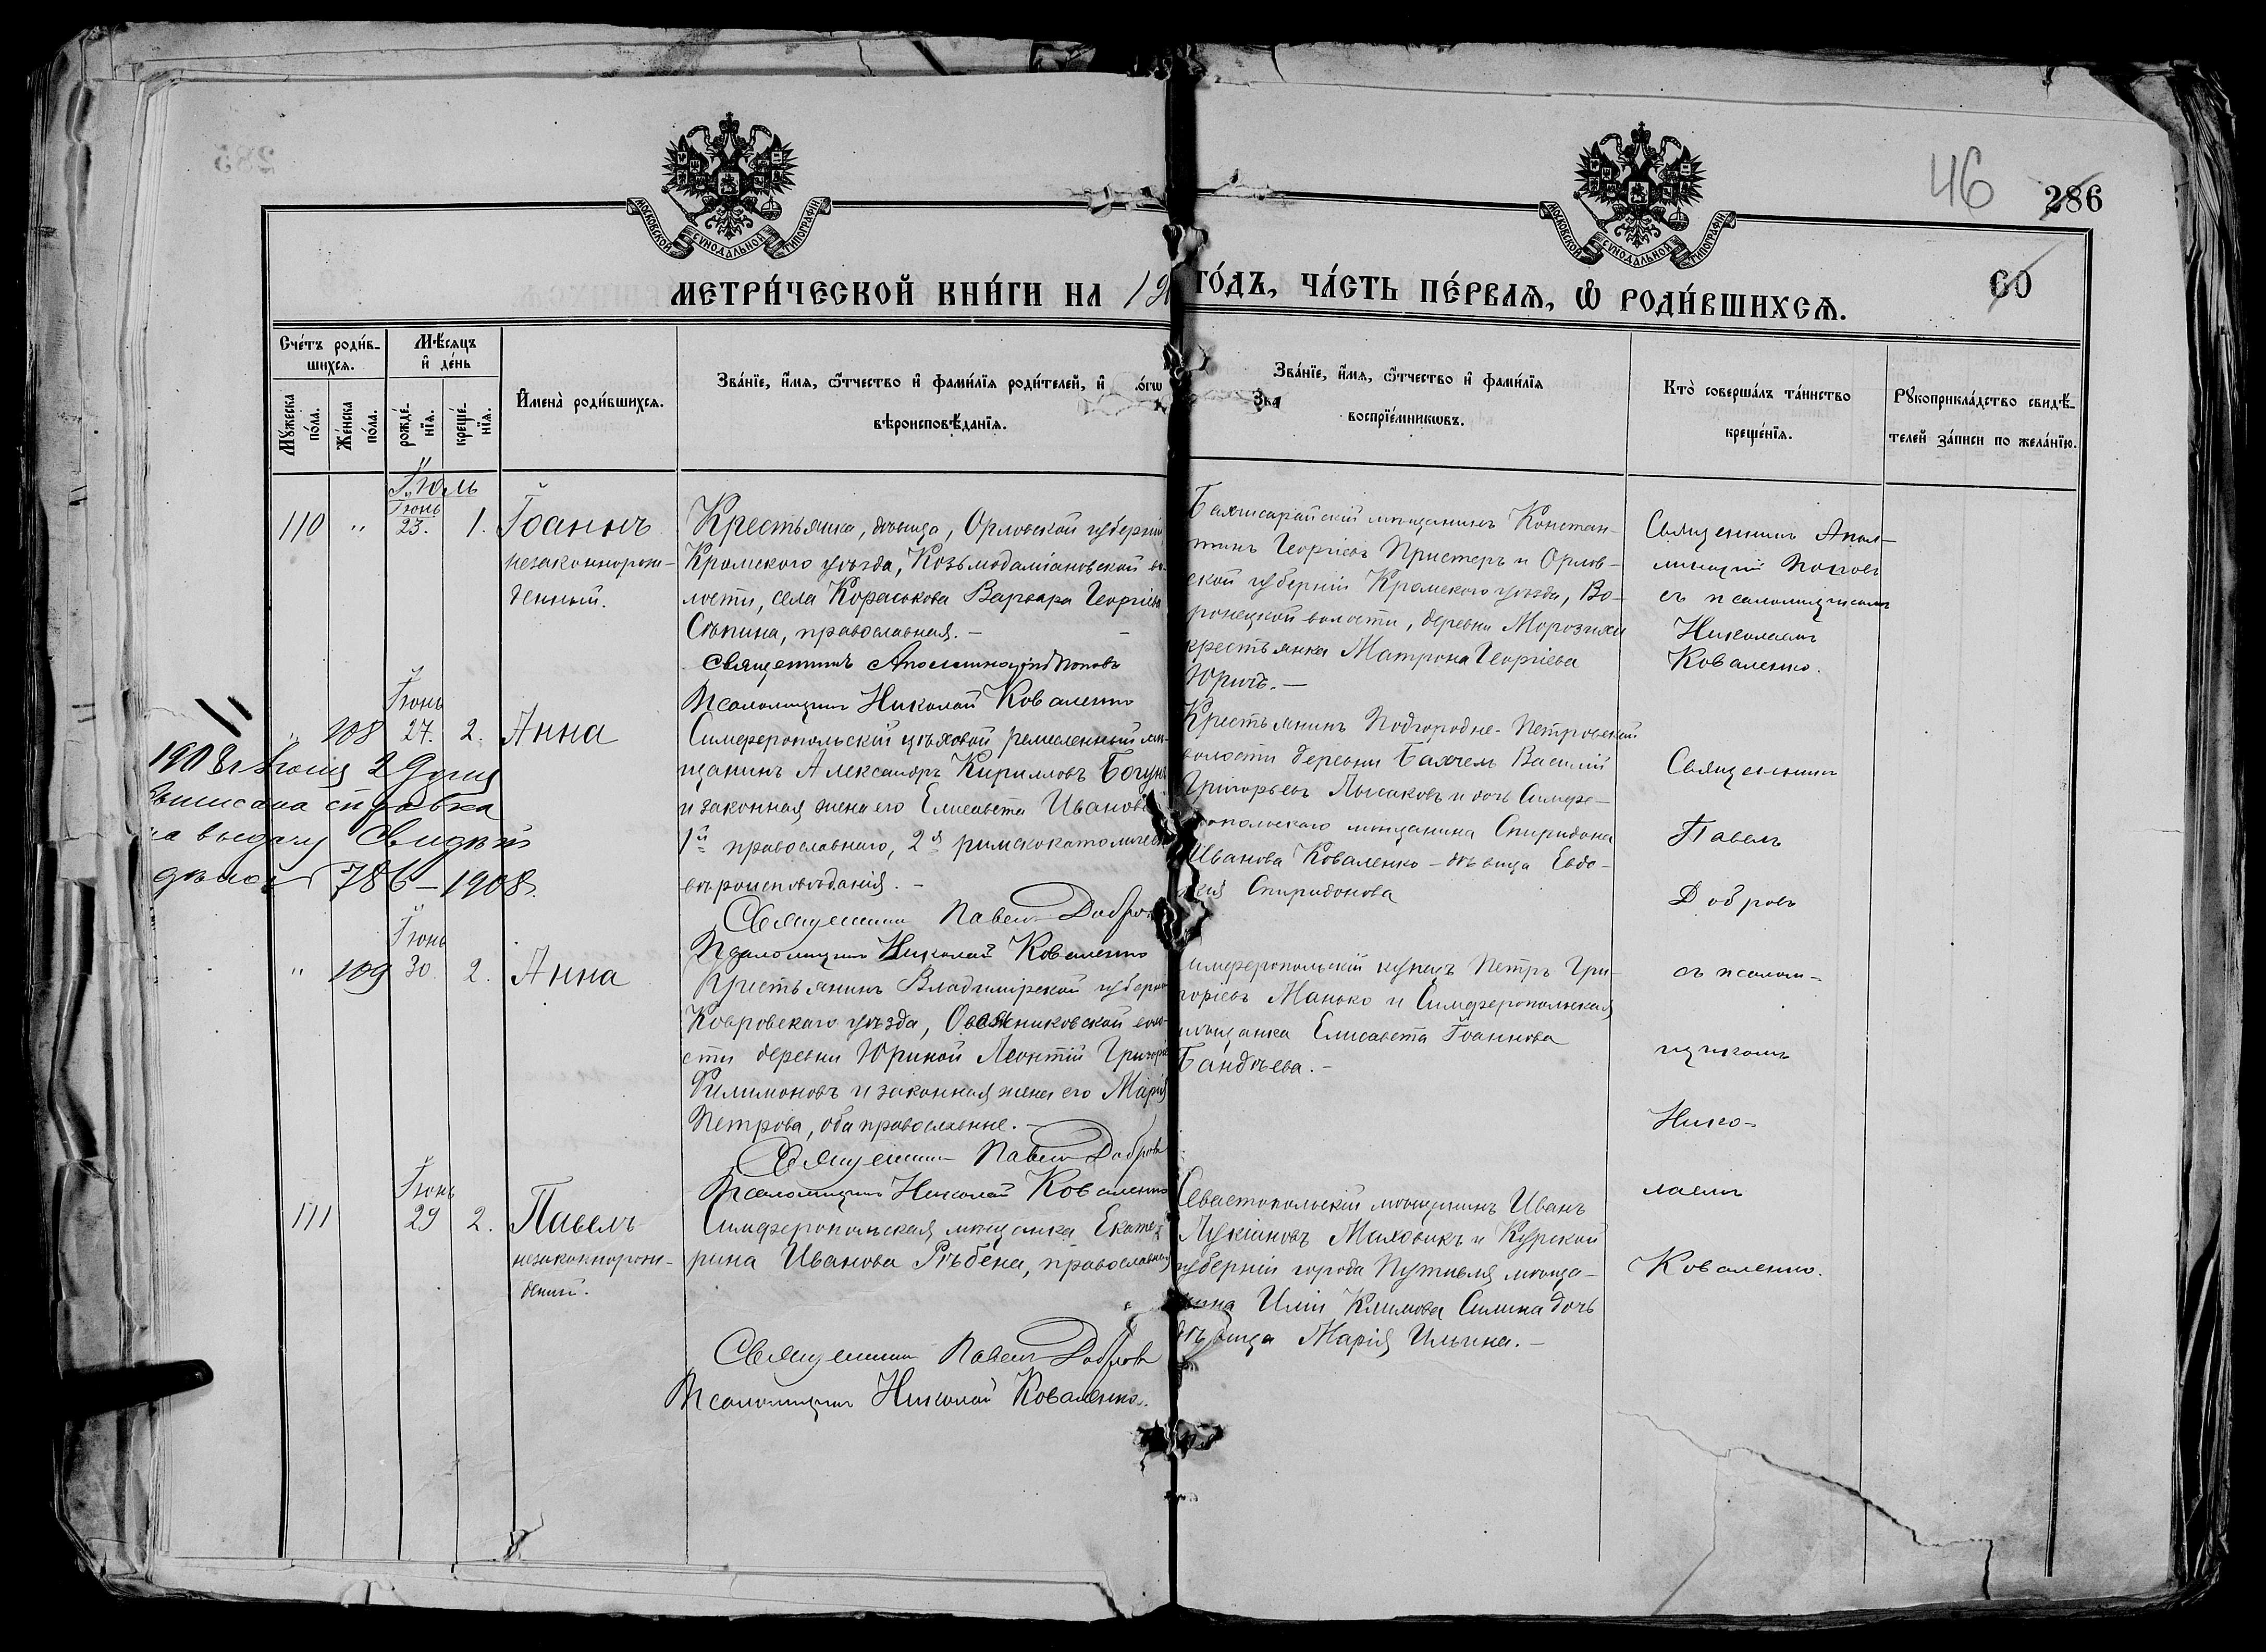 285
46
286
60
МОСКОВСКОЙ СУНОДАЛЬНОЙ ТИПОГРАФІИ
МОСКОВСКОЙ СУНОДАЛЬНОЙ ТИПОГРАФІИ
МЕТРИ́ЧЕСКОЙ КНИ́ГИ НА 19
ГО́ДЪ, ЧА́СТЬ ПЕ́РВАѦ, Ѿ РОДИ́ВШИХСѦ.
Сче́тъ роди́в-
шихсѧ.
Мѣ́сяцъ
и҆ де́нь
Мꙋ́жеска по́ла.
Же́нска по́ла.
рожде́-нїѧ.
креще́-нїѧ.
И҆мена̀ роди́вшихсѧ.
Зва́нїе, и҆́мѧ, ѻ҆́тчество и҆ фами́лїѧ роди́телей, и҆
вѣроисповѣ́данїѧ.
Зва́нїе, и҆́мѧ, ѻ҆́тчество и҆ фами́лїѧ
воспрїе́мникѡвъ.
Кто̀ соверша́лъ та́инство
креще́нїѧ.
Рꙋкоприкла́дство свидѣ́-
телей за́писи по жела́нїю.
Іюль
110 " Іюнь 23. 1. Іоаннъ
незаконнорож-
денный.
Крестьянка, дѣвица, Орловской губерніи
Кромского уѣзда, Козьмодаміановской во-
лости, села Кораськова Варвара Георгіева
Сѣпина, православная. –
Священникъ Аполлинарій Поповъ
Псаломщикъ Николай Коваленко
Бахчисарайскій мѣщанинъ Констан-
тинъ Георгіевъ Пристеръ и Орлов-
ской губерніи Кромского уѣзда, Во-
ронецкой волости, деревни Морозихи
крестьянка Матрона Георгіева
Юричъ. –
Священникъ Апол-
линарій Поповъ
съ псаломщикомъ
Николаемъ
Коваленко.
" 108 Іюнь 27. 2. Анна
Симферопольскій цѣховой ремесленный мѣ-
щанинъ Александръ Кирилловъ Богун
и законная жена его Елисавета Иванова
1й православнаго, 2я римскокатолическ
вѣроисповѣданія. –
Священникъ Павелъ Добровъ
Псаломщикъ Николай Коваленко
Крестьянинъ Подгородне-Петровской
волости деревни Бахчель Василій
Григорьевъ Лысаковъ и дочь Симфе-
ропольскаго мѣщанина Спиридона
Иванова Коваленко – дѣвица Евдо-
кія Спиридонова
1908 г. Іюня 29 дня
выписана справка
на выдачу свидѣт
дѣло 786 – 1908.
Священникъ
Павелъ
Добровъ
съ псалом-
щикомъ
Нико-
лаемъ
Коваленко.
" 109 Іюнь 30. 2. Анна
Крестьянинъ Владимірской губерніи
Ковровскаго уѣзда, Овсяниковской воло-
сти деревни Юриной Леонтій Григорьев
Филимоновъ и законная жена его Марія
Петрова, оба православные. –
Священникъ Павелъ Добровъ
Псаломщикъ Николай Коваленко
Симферопольскій купецъ Петръ Гри-
горіевъ Манько и Симферопольская
мѣщанка Елисавета Іоаннова
Бандѣева. –
111 Іюнь 29 2. Павелъ
незаконнорож-
денный.
Симферопольская мѣщанка Екате-
рина Иванова Рѣбена, православная
Священникъ Павелъ Добровъ
Псаломщикъ Николай Коваленко.
Севастопольскій мѣщанинъ Иванъ
Лукіановъ Маховикъ и Курской
губерніи города Путивля мѣща-
нина Иліи Климова Силина дочь
дѣвица Марія Ильина. –